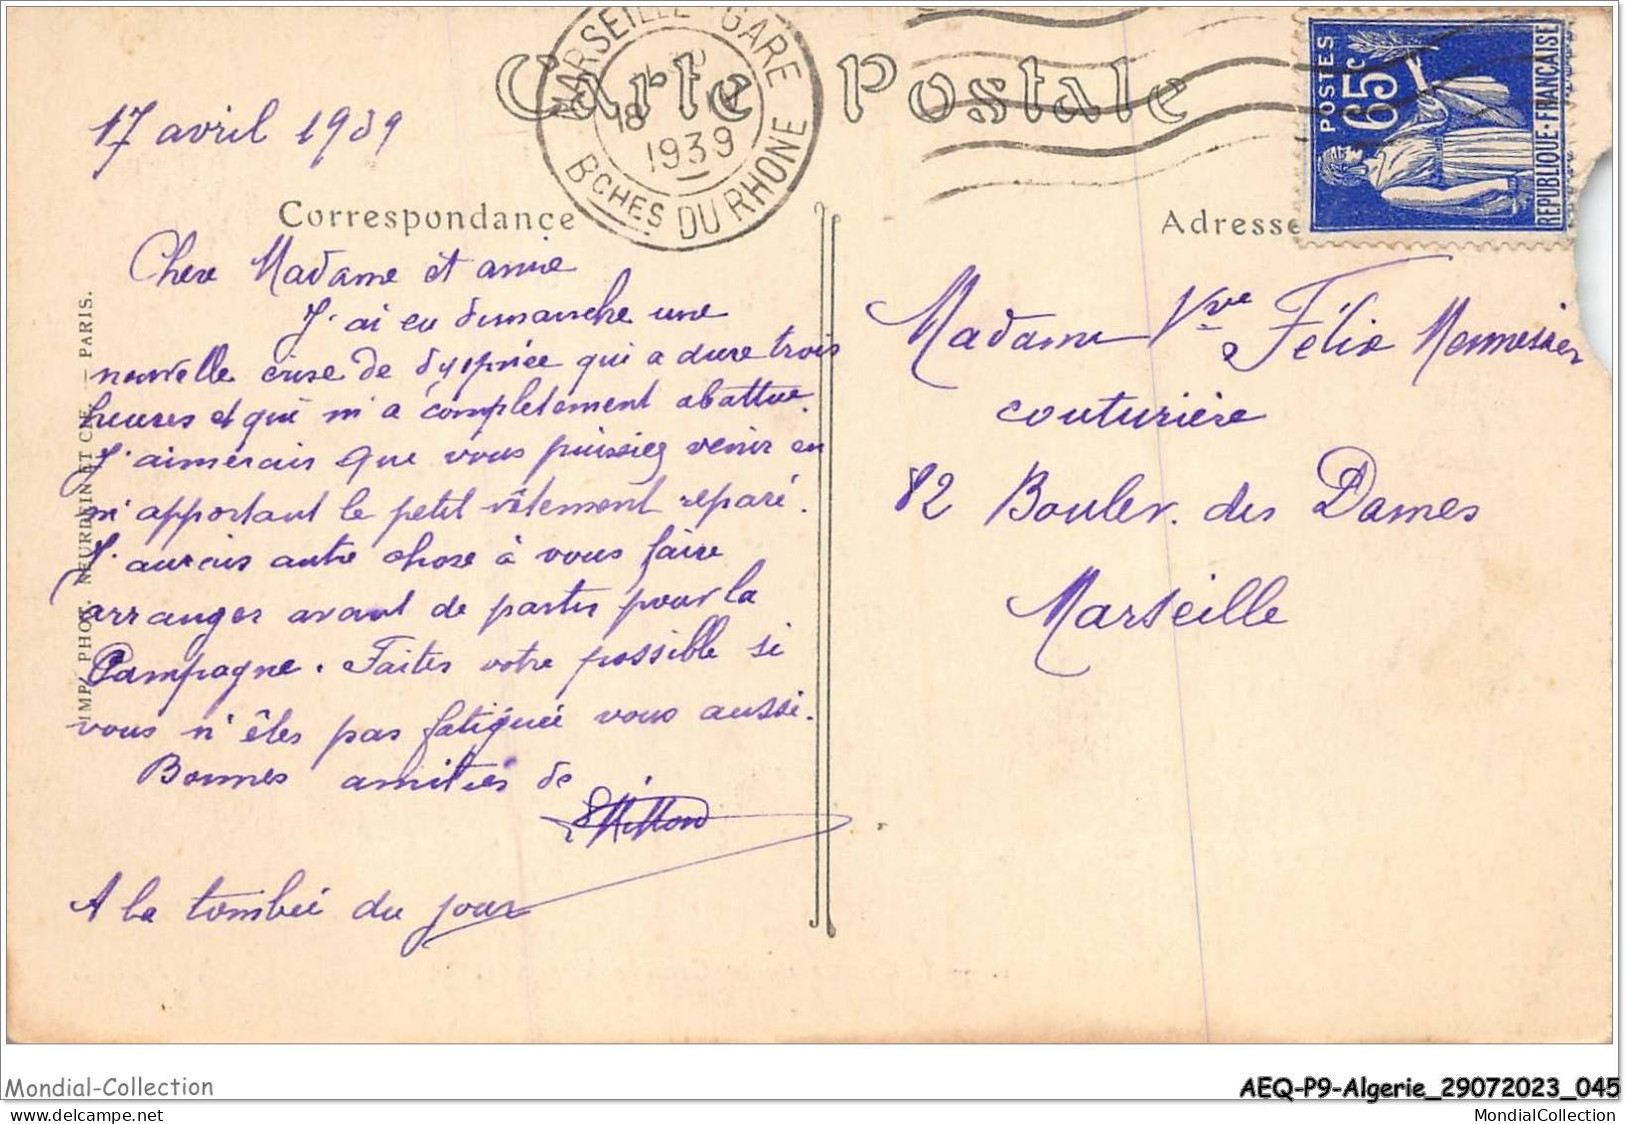 Carte Postale
MARSEILLE GARE
18
1939
BCHES DU RHONE
POSTES
65c
REPUBLIQUE·FRANÇAISE
17 avril 1939
Correspondance
Chere Madame et amie
J'ai eu dimanche une
nouvelle crise de dyspnée qui a dure trois
heures et qui m'a complètement abattue.
J'aimerais que vous puissiez venir en
m'apportant le petit vêtement reparé.
J'aurais autre chose à vous faire
arranger avant de partir pour la
Campagne. Faites votre possible si
vous n'êtes pas fatiguée vous aussi.
Bonnes amitiés de
A la tombée du jour
IMP. PHOT. NEURDEIN ET CIE. - PARIS.
Adresse
Madame Vve Félix
couturière
82 Boulev. des Dames
Marseille
Mondial-Collection
AEQ-P9-Algerie_29072023_045
delcampe.net
MondialCollection